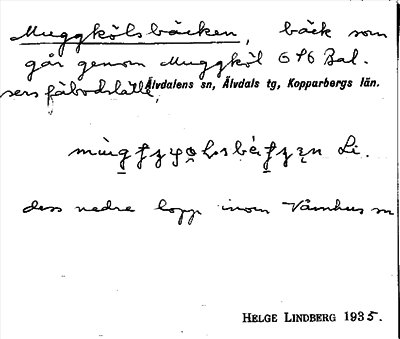 Muggkölsbäcken, bäck som
går genom Muggköl 6 f 6 Bal-
sers fäbodställe,
Älvdalens sn, Älvdals tg, Kopparbergs län.
Li.
dess nedre lopp inom Våmhus sn
HELGE LINDBERG 1935.